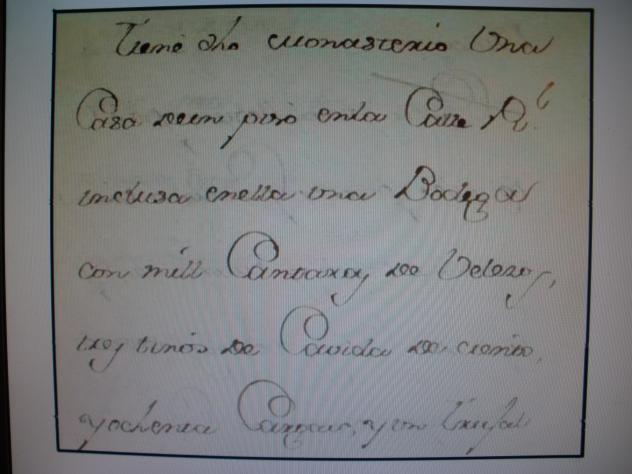 Tiene dho Monasterio Una
Casa de un piso enla Calle Rl
inclusa enella una Bodega
con mill Cantaras de
tres tinos de Cavida de ciento,
y ochenta Cargas, y un Trujal